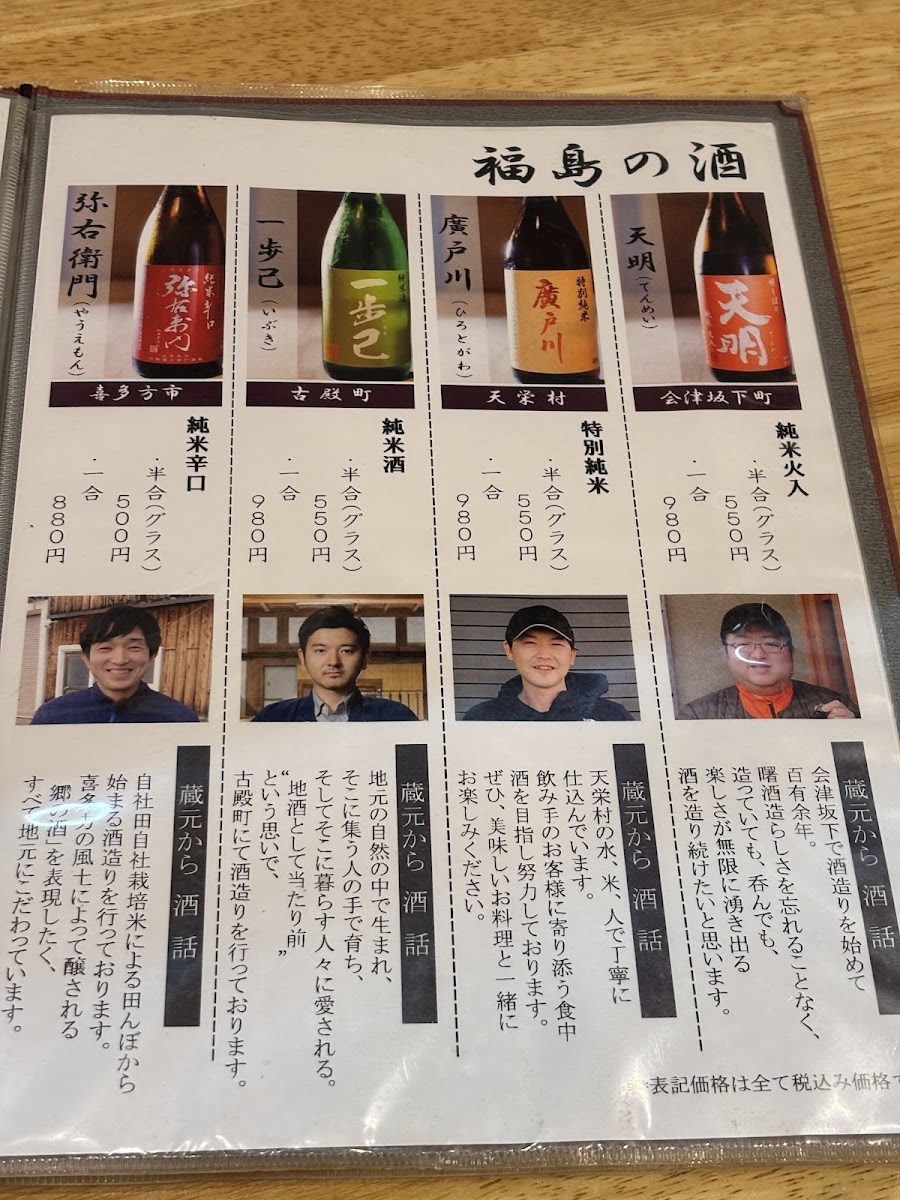 福島の酒
天明
(てんめい)
天明
会津坂下町
純米火入
・半合(グラス)
550円
・一合
980円
蔵元から 酒 話
会津坂下で酒造りを始めて
百有余年。
曙酒造らしさを忘れることなく、
造っていても、呑んでも、
楽しさが無限に湧き出る
酒を造り続けたいと思います。
廣戸川
(ひろとがわ)
特別純米
廣戸川
天栄村
特別純米
・半合(グラス)
550円
・一合
980円
蔵元から 酒 話
天栄村の水、米、人で丁寧に
仕込んでいます。
飲み手のお客様に寄り添う食中
酒を目指し努力しております。
ぜひ、美味しいお料理と一緒に
お楽しみください。
一歩己
(いぶき)
純米酒
一歩己
古殿町
純米酒
・半合(グラス)
550円
・一合
980円
蔵元から 酒 話
地元の自然の中で生まれ、
そこに集う人の手で育ち、
そしてそこに暮らす人々に愛される。
“地酒として当たり前”
という思いで、
古殿町にて酒造りを行っております。
弥右衛門
(やうえもん)
純米辛口
弥右衛門
喜多方市
純米辛口
・半合(グラス)
500円
・一合
880円
蔵元から 酒 話
自社田自社栽培米による田んぼから
始まる酒造りを行っております。
喜多方の風土によって醸される
「郷の酒」を表現したく、
すべて地元にこだわっています。
表記価格は全て税込み価格で